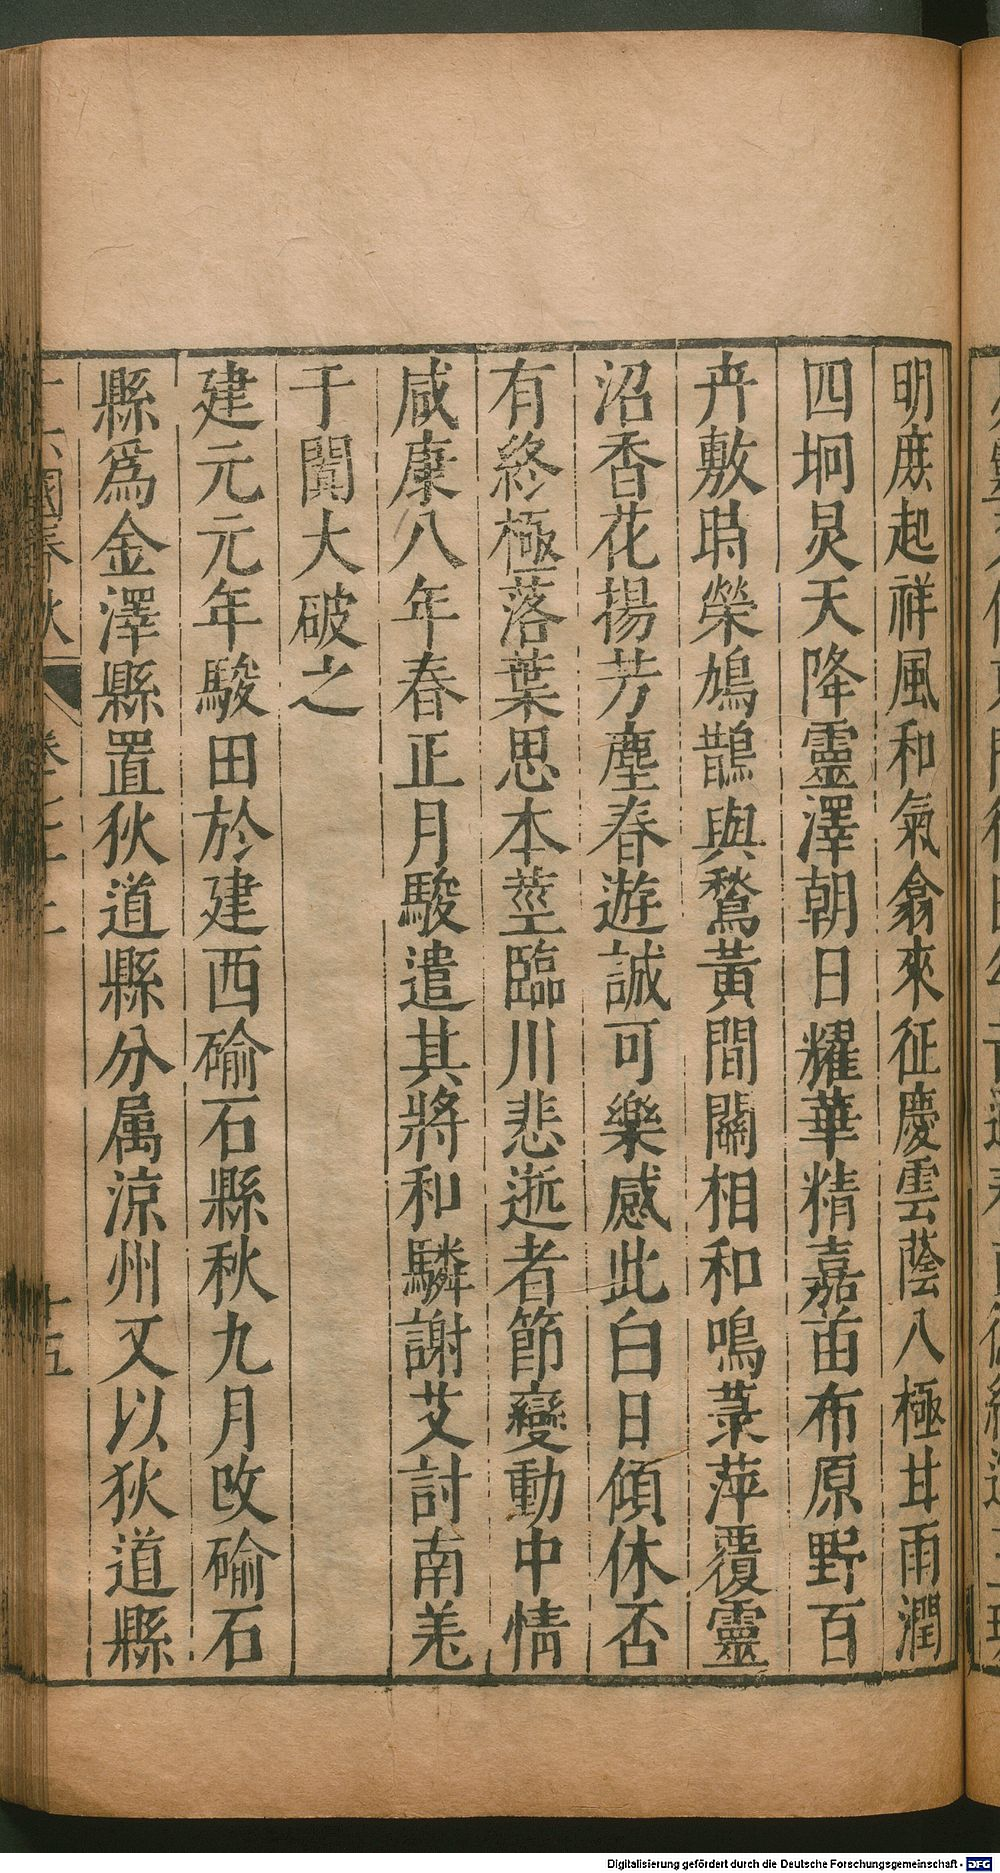 明庶起祥風和氣翕來征慶雲蔭八極甘雨潤
四坰炅天降靈澤朝日耀華精嘉苗布原野百
卉敷時榮鳩鵲與鶖黃間關相和鳴菉萍覆靈
沼香花揚芳塵春遊誠可樂感此白日傾休否
有終極落葉思本莖臨川悲逝者節變動中情
咸康八年春正月駿遣其將和驎謝艾討南羌
于闐大破之
建元元年駿田於建西碖石縣秋九月改碖石
縣爲金澤縣置狄道縣分属涼州又以狄道縣
國春秋
十五
Digitalisierung gefördert durch die Deutsche Forschungsgemeinschaft - DFG